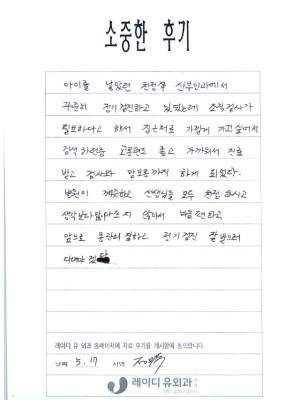 소중한 후기
아이를 낳았던 친정쪽 산부인과에서
꾸준히 정기검진하고 있었는데 조직검사가
필요하다고 해서 집근처로 가깝게 가고싶어서
검색하던중 고름펜트 좋고 가까워서 진료
받고 검사와 맘모톰까지 하게 되었다.
병원이 깨끗하고 선생님들 모두 친절하시고
생각보다 많이 아프지 않아서 마음편하고
앞으로 꾸준히 잘하고 정기검진 잘 받으러
다녀야 겠다.
레이디 유 외과 홈페이지에 치료 후기를 게시함에 동의합니다.
날짜 5. 17 서명
레이디유외과